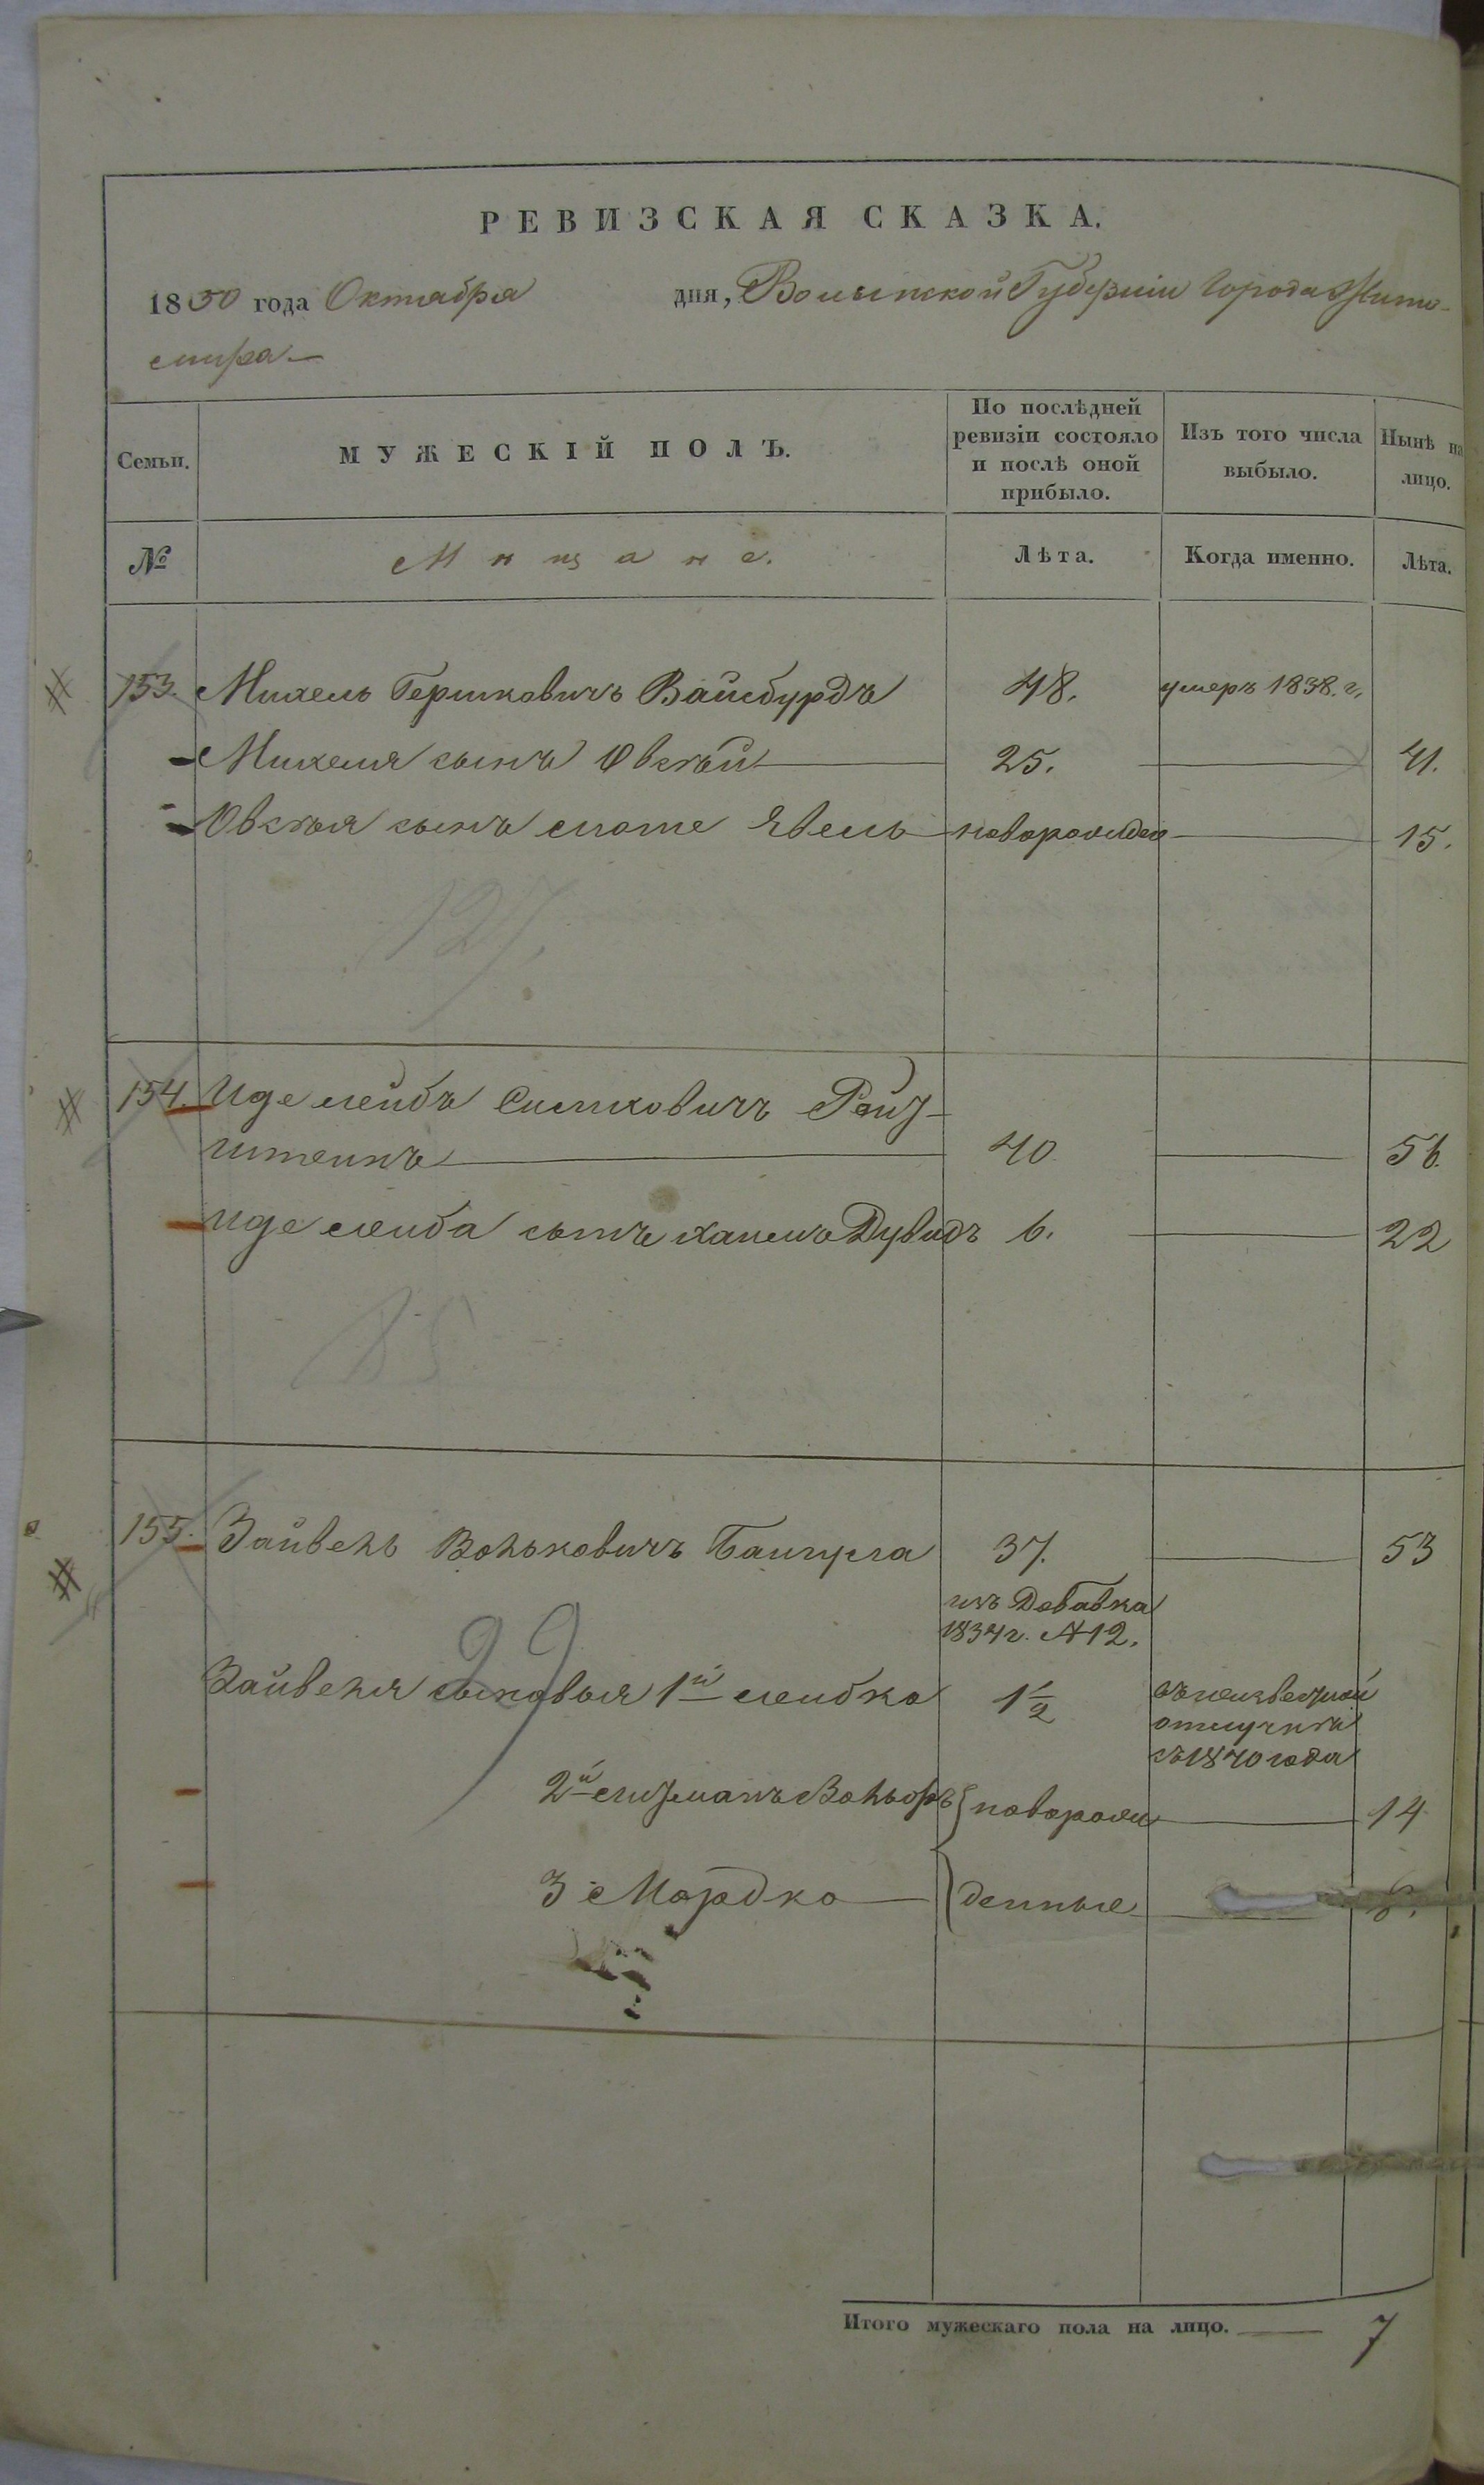 РЕВИЗСКАЯ СКАЗКА.
1850 года Октября дня, Волынской Губерніи Города Жито-
мира
Семьи. МУЖЕСКІЙ ПОЛЪ. По послѣдней ревизіи состояло и послѣ оной прибыло. Изъ того числа выбыло. Нынѣ на лицо.
№ Мѣщане. Лѣта. Когда именно. Лѣта.
153. Михель Гершковичъ Вайсбурдъ 48. умеръ 1838. г.
Михеля сынъ Овсѣй 25. 41.
Овсѣя сынъ Явель новорожден 15.
127.
154. Иде лейбъ Рейз-
штейнъ 40 56.
Иде лейба сынъ Дувидъ 6. 22
85
155. Зайвель Вольковичъ 37. 53
изъ Добавка
1834 г. №12.
Зайвеля сыновья 1й лейбко 1½ въ неизвестной
отлучкѣ
съ 1840 года
99
2й Вольфъ новорож 14
3 Мордко денные
Итого мужескаго пола на лицо. 7